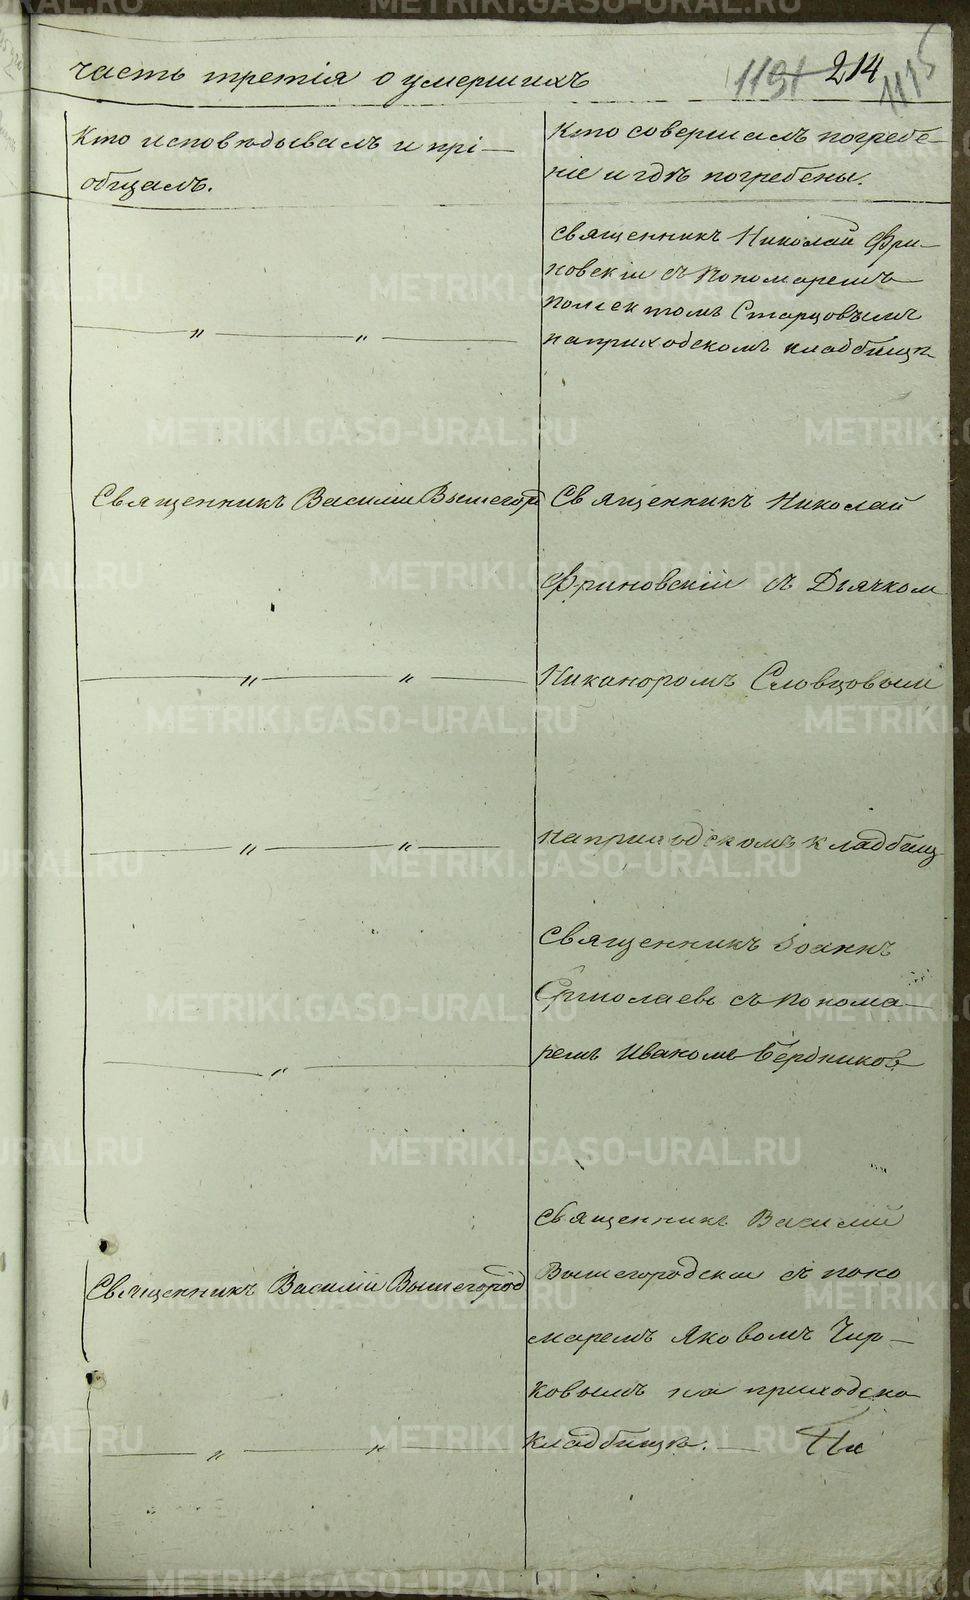 часть третія о умершихъ
1191 214 1115
Кто исповѣдывалъ и прі-
общалъ.
Кто совершалъ погребе-
ніе и гдѣ погребены.
Священникъ Николай Фри-
новскій съ Пономаремъ
Полієктомъ Старцовымъ
на приходскомъ кладбищѣ
Священникъ Василій Вышегород
Священникъ Николай
Фриновскій съ Дьячком
Никаноромъ Словцовым
на приходскомъ кладбищ
Священникъ Іоаннъ
Ермолаевъ съ понома-
ремъ Иваномъ Бердников
Священникъ Василій Вышегород
Священникъ Василій
Вышегородскій съ поно
маремъ Яковомъ Чир-
ковымъ на приходско
кладбищѣ. На
METRIKI.GASO-URAL.RU